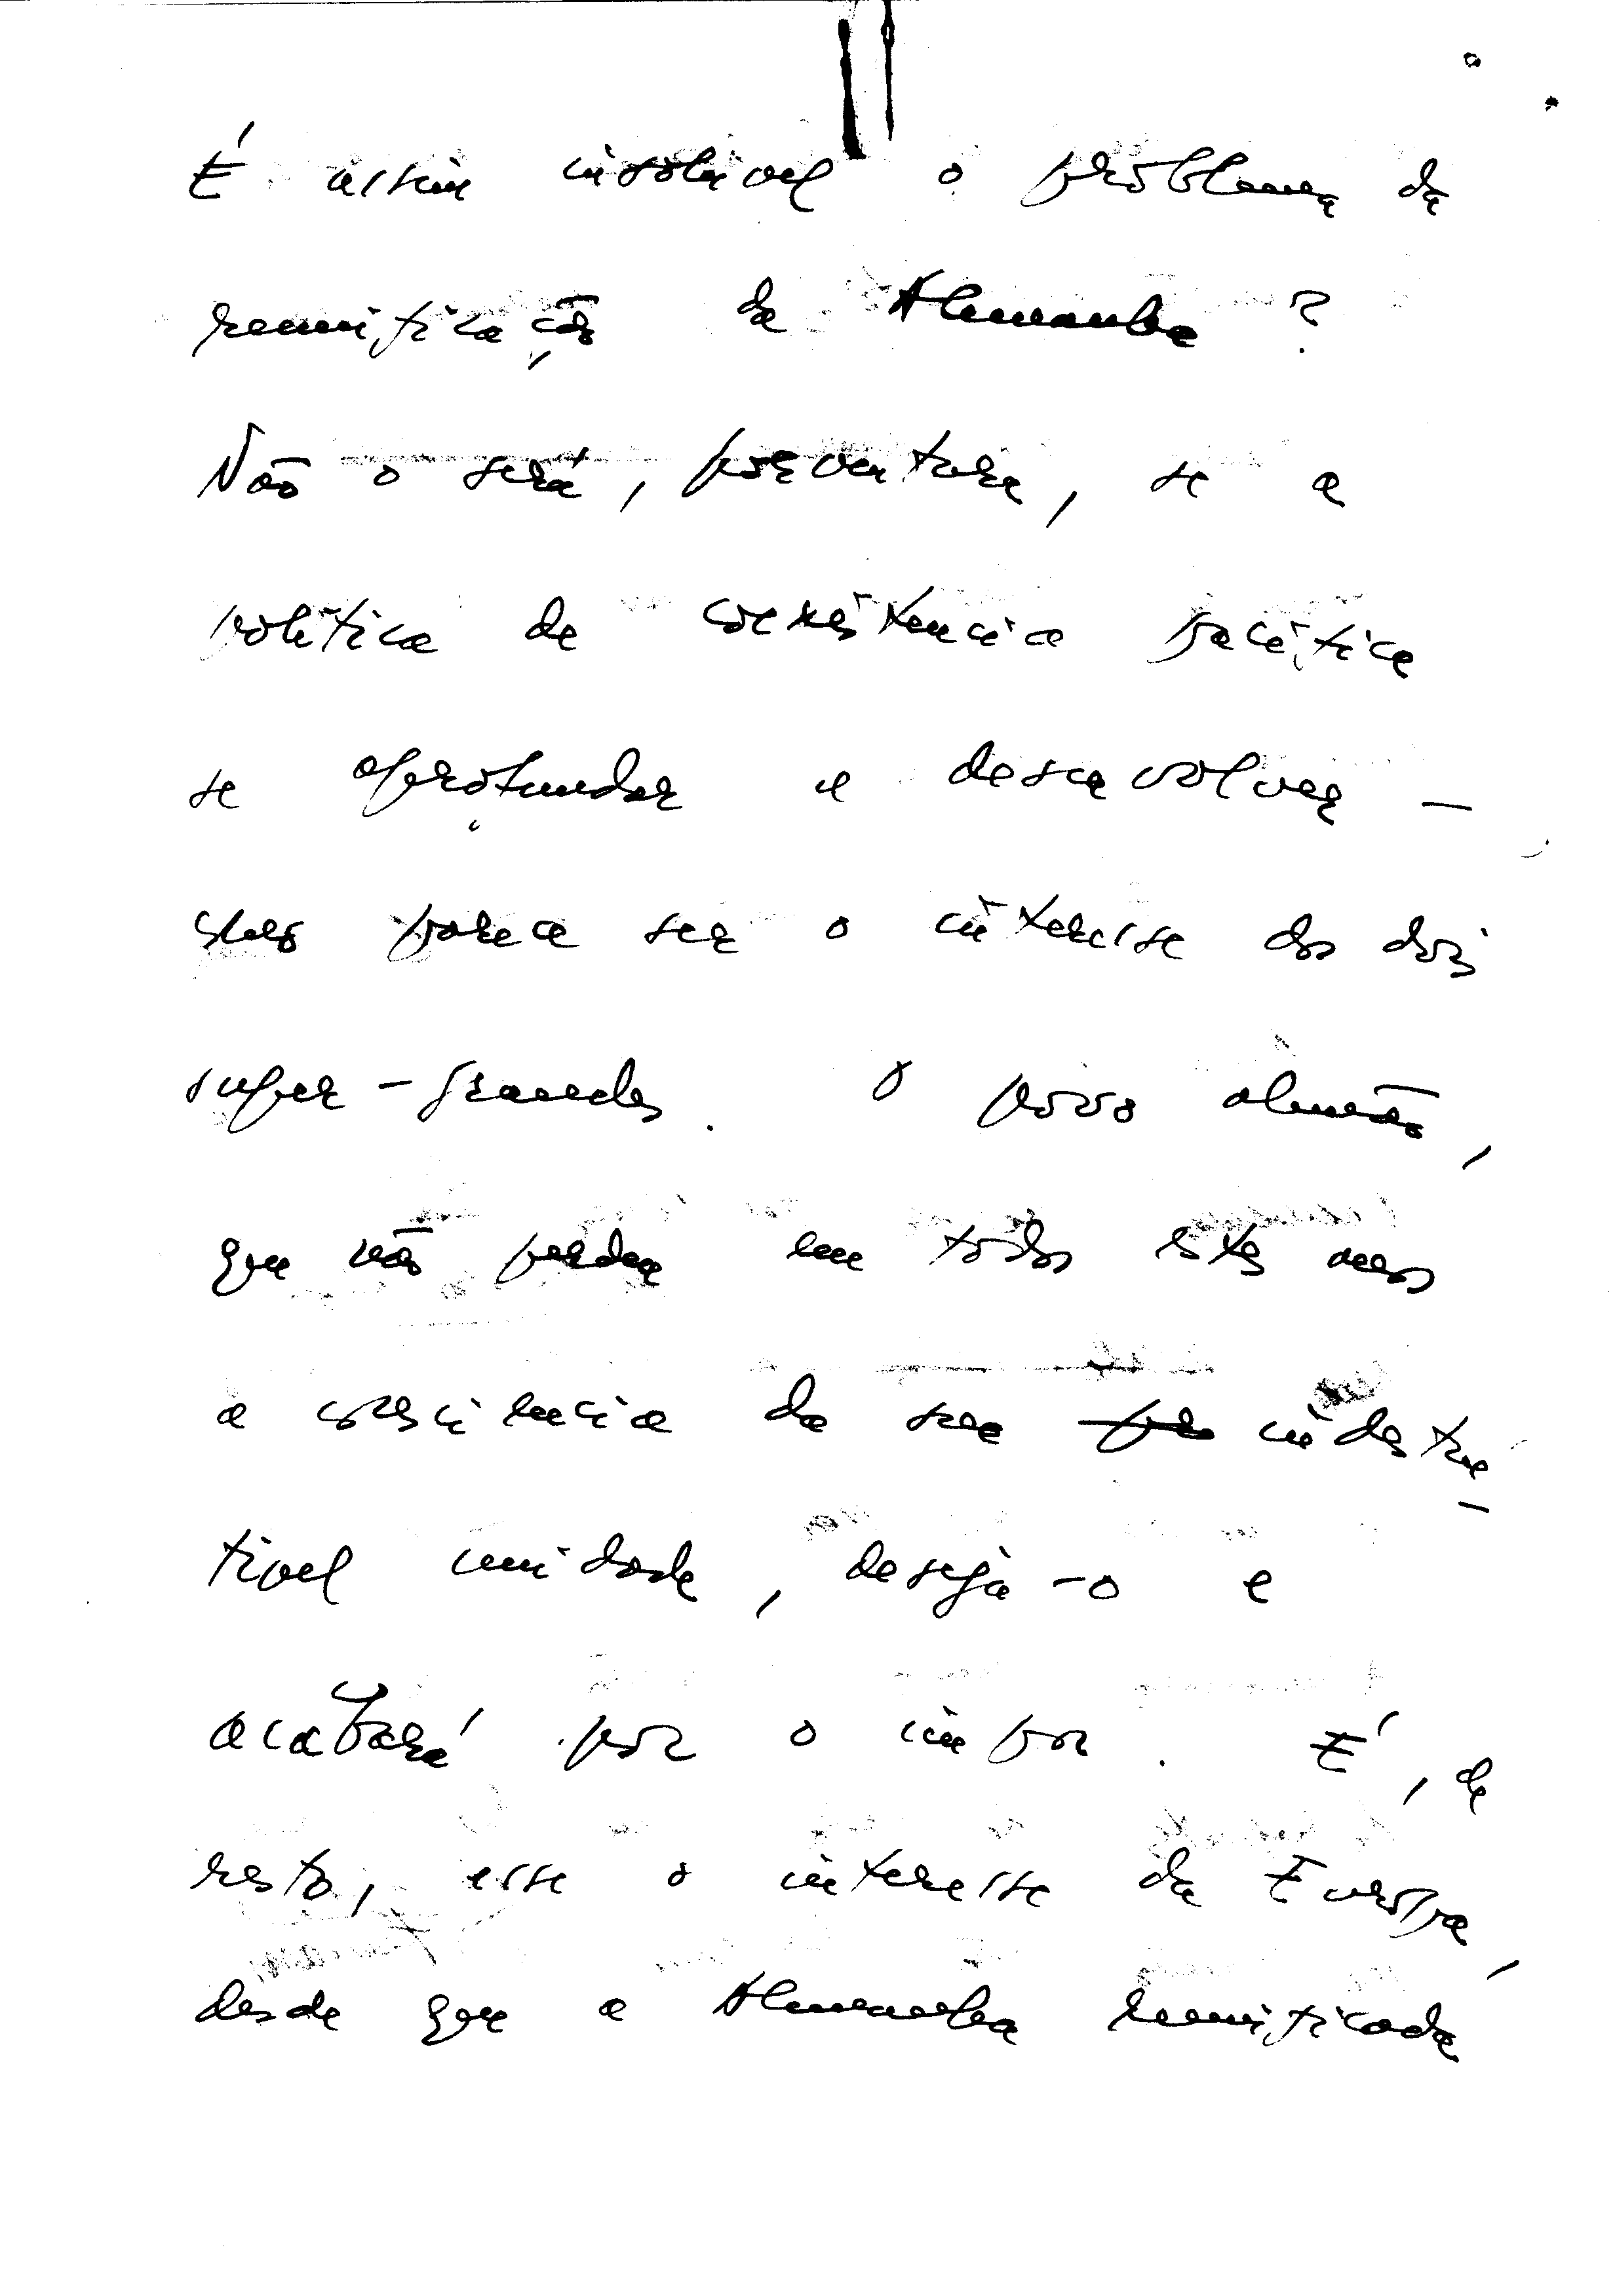 É assim insolúvel o problema da
reunificação da Alemanha ?
Não o será, porventura, se a
política de coexistência pacífica
se aprofundar e desenvolver –
como parece ser o interesse dos dois
super-grandes. O povo alemão,
que não perdeu em todos estes anos
a consciência da sua indestru-
tível unidade, deseja-o e
acabará por o impor. É, de
resto, esse o interesse da Europa,
desde que a Alemanha reunificada